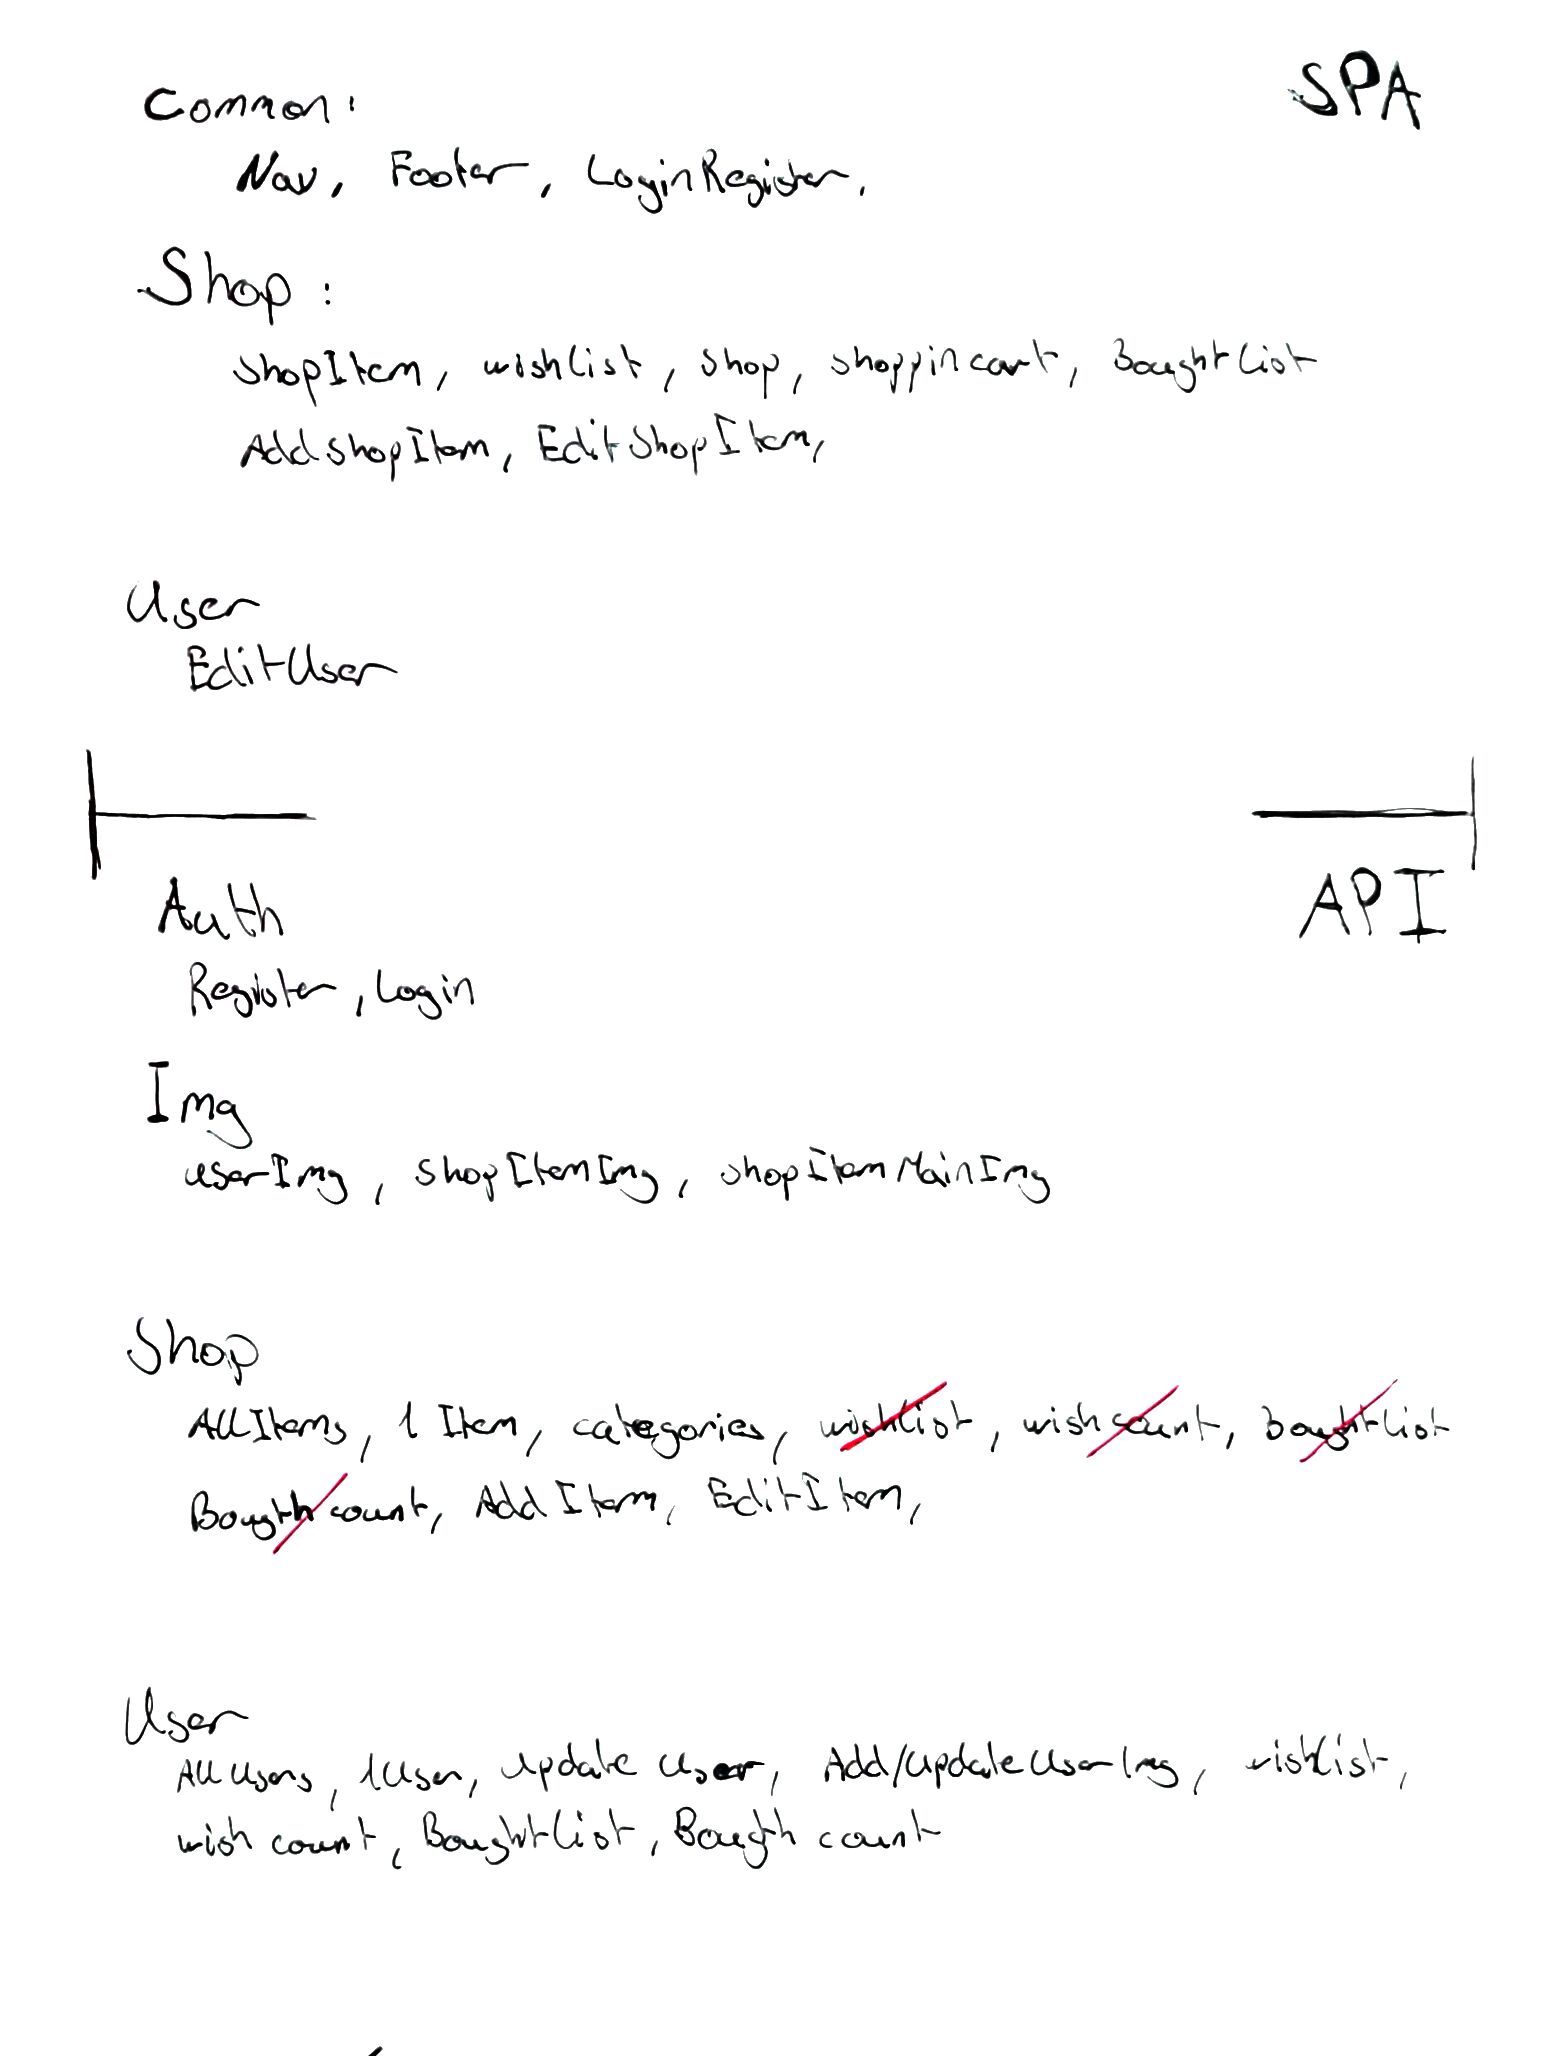 SPA
Common:
Nav, Footer, LoginRegister,
Shop:
ShopItem, wishlist, Shop, shoppincart, Boughtlist
AddshopItem, EditShopItem,
User
EditUser
API
Auth
Register, Login
Img
userImg, shopItemImg, shopItemMainImg
Shop
AllItems, 1 Item, categories, wishlist, wish count, Boughtlist
Bougth count, Add Item, EditItem,
User
AllUsers, 1User, update User, Add/UpdateUserImg, wishlist,
wish count, Boughtlist, Bougth count